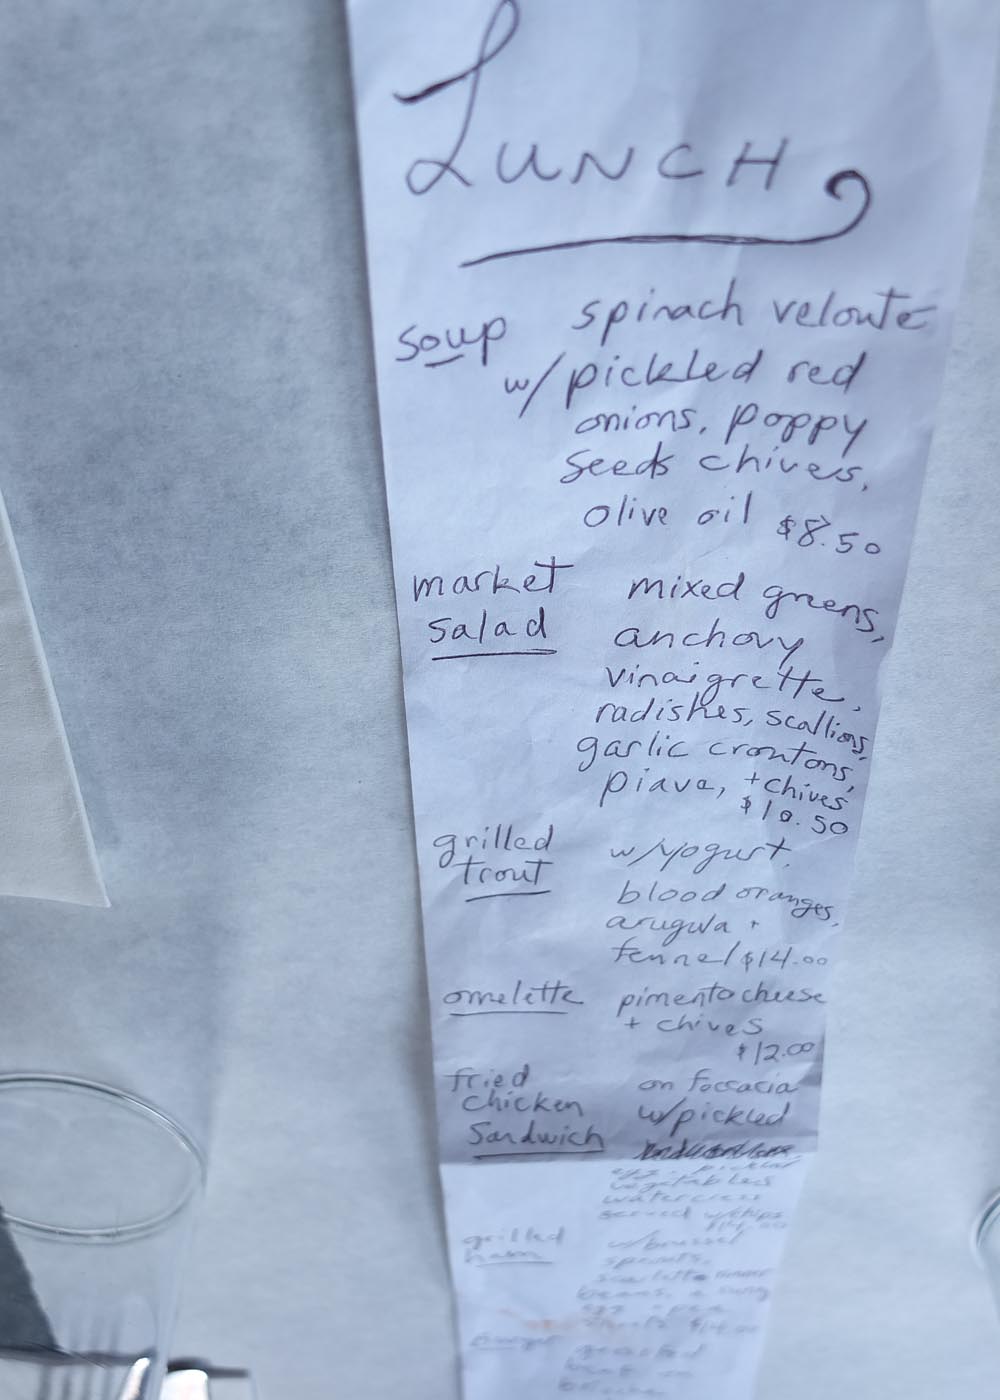 LUNCH
soup spinach veloute
w/ pickled red
onions, poppy
seeds chives,
olive oil $8.50
market mixed greens,
salad anchovy
vinaigrette,
radishes, scallions,
garlic croutons,
piave, + chives
$10.50
grilled w/ yogurt,
trout blood oranges,
arugula +
fennel $14.00
omelette pimento cheese
+ chives
$12.00
fried on foccacia
chicken w/ pickled
sandwich
vegetables
watercress
served w/ chips
$14.00
grilled w/ brussel
ham sprouts,